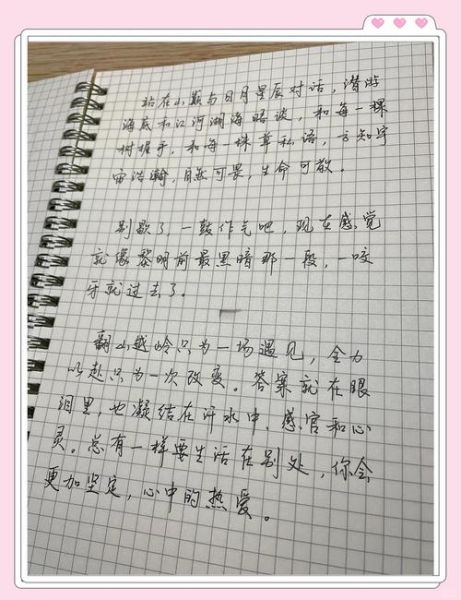 站在山巅与日月星辰对话，潜游
海底和江河湖海晤谈，和每一棵
树握手，和每一株草私语，方知宇
宙浩瀚，自然可畏，生命可敬。
别歇了，一鼓作气吧，现在感觉
就像黎明前最黑暗那一段，一咬
牙就过去了。
翻山越岭只为一场遇见，全力
以赴只为一次改变。答案就在眼
泪里，也凝结在汗水中，感官和心
灵。总有一样要生活在别处，你会
更加坚定，心中的热爱。